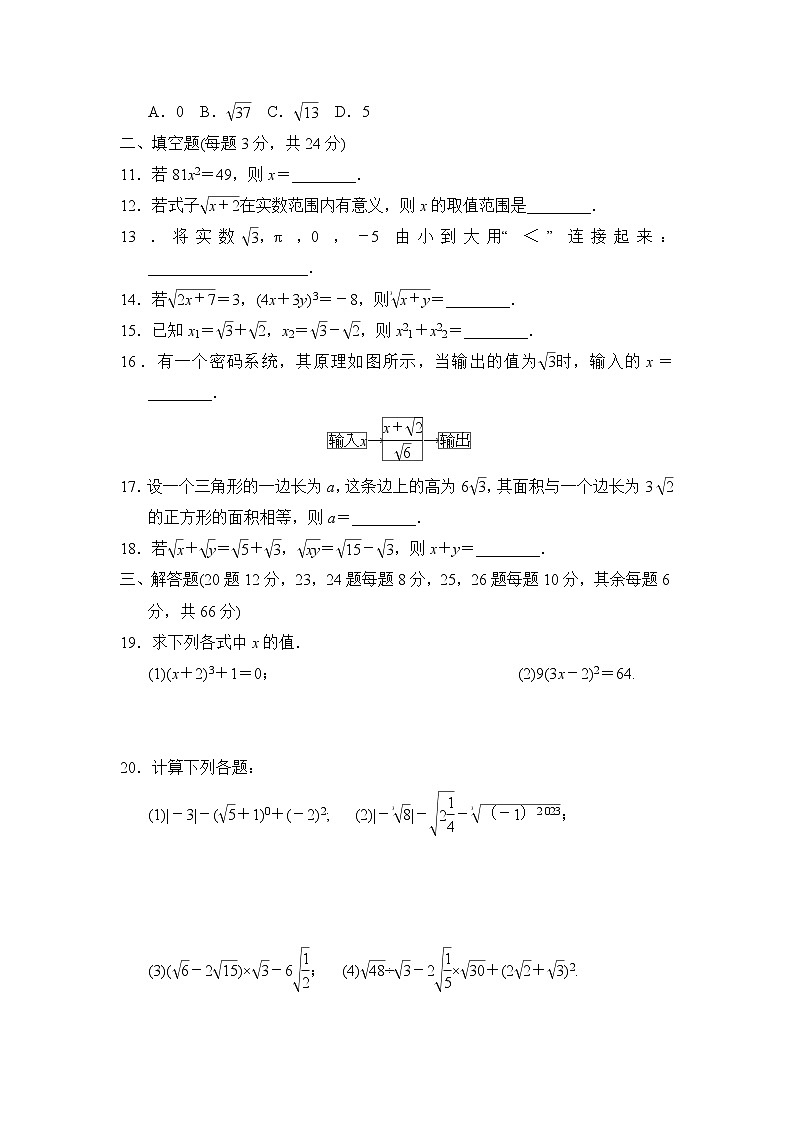 A．0　B．√37　C．√13　D．5
二、填空题(每题3分，共24分)
11．若81x²＝49，则x＝________．
12．若式子√(x＋2)在实数范围内有意义，则x的取值范围是________．
13．将实数√3，π，0，－5由小到大用“＜”连接起来：
____________________．
14．若√(2x＋7)＝3，(4x＋3y)³＝－8，则³√(x＋y)＝________．
15．已知x₁＝√3＋√2，x₂＝√3－√2，则x²₁＋x²₂＝________．
16．有一个密码系统，其原理如图所示，当输出的值为√3时，输入的x＝
________．
输入x→(x＋√2)/√6→输出
17．设一个三角形的一边长为a，这条边上的高为6√3，其面积与一个边长为3√2
的正方形的面积相等，则a＝________．
18．若√x＋√y＝√5＋√3，√(xy)＝√15－√3，则x＋y＝________．
三、解答题(20题12分，23，24题每题8分，25，26题每题10分，其余每题6
分，共66分)
19．求下列各式中x的值．
(1)(x＋2)³＋1＝0；　(2)9(3x－2)²＝64.
20．计算下列各题：
(1)|－3|－(√5＋1)⁰＋(－2)²；　(2)|－³√8|－√(2 1/4)－³√(（－1）²⁰²³)；
(3)(√6－2√15)×√3－6√(1/2)；　(4)√48÷√3－2√(1/5)×√30＋(2√2＋√3)².